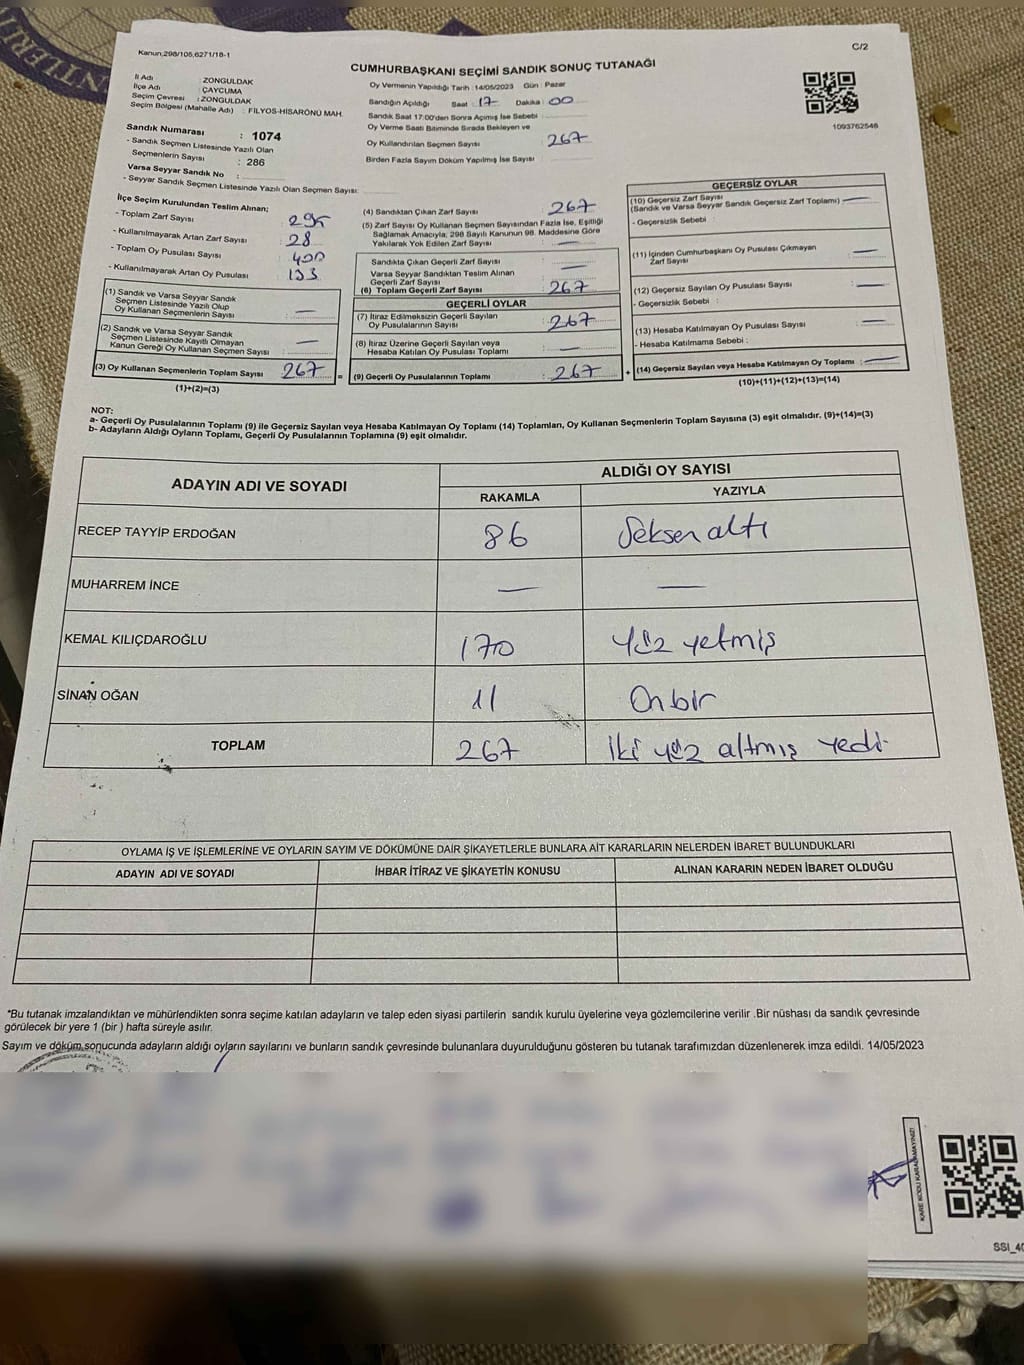 Kanun,298/105,6271/18-1
C/2
CUMHURBAŞKANI SEÇİMİ SANDIK SONUÇ TUTANAĞI
İl Adı : ZONGULDAK
İlçe Adı : ÇAYCUMA
Seçim Çevresi : ZONGULDAK
Seçim Bölgesi (Mahalle Adı) : FİLYOS-HİSARÖNÜ MAH.
Oy Vermenin Yapıldığı Tarih : 14/05/2023 Gün : Pazar
Sandığın Açıldığı Saat : 17 Dakika : 00
Sandık Saat 17:00'den Sonra Açımış İse Sebebi :
Oy Verme Saati Bitiminde Sırada Bekleyen ve
Oy Kullandırılan Seçmen Sayısı : 267
Birden Fazla Sayım Döküm Yapılmış İse Sayısı :
1093762546
Sandık Numarası : 1074
- Sandık Seçmen Listesinde Yazılı Olan
Seçmenlerin Sayısı : 286
Varsa Seyyar Sandık No :
- Seyyar Sandık Seçmen Listesinde Yazılı Olan Seçmen Sayısı:
İlçe Seçim Kurulundan Teslim Alınan;
- Toplam Zarf Sayısı : 295
- Kullanılmayarak Artan Zarf Sayısı : 28
- Toplam Oy Pusulası Sayısı : 400
- Kullanılmayarak Artan Oy Pusulası : 133
(1) Sandık ve Varsa Seyyar Sandık
Seçmen Listesinde Yazılı Olup
Oy Kullanan Seçmenlerin Sayısı : —
(2) Sandık ve Varsa Seyyar Sandık
Seçmen Listesinde Kayıtlı Olmayan
Kanun Gereği Oy Kullanan Seçmen Sayısı : —
(3) Oy Kullanan Seçmenlerin Toplam Sayısı : 267 =
(1)+(2)=(3)
(4) Sandıktan Çıkan Zarf Sayısı : 267
(5) Zarf Sayısı Oy Kullanan Seçmen Sayısından Fazla İse, Eşitliği
Sağlamak Amacıyla; 298 Sayılı Kanunun 98. Maddesine Göre
Yakılarak Yok Edilen Zarf Sayısı : —
Sandıkta Çıkan Geçerli Zarf Sayısı :
Varsa Seyyar Sandıktan Teslim Alınan
Geçerli Zarf Sayısı : —
(6) Toplam Geçerli Zarf Sayısı : 267
GEÇERLİ OYLAR
(7) İtiraz Edilmeksizin Geçerli Sayılan
Oy Pusulalarının Sayısı : 267
(8) İtiraz Üzerine Geçerli Sayılan veya
Hesaba Katılan Oy Pusulası Toplamı : —
(9) Geçerli Oy Pusulalarının Toplamı : 267 +
GEÇERSİZ OYLAR
(10) Geçersiz Zarf Sayısı
(Sandık ve Varsa Seyyar Sandık Geçersiz Zarf Toplamı) : —
- Geçersizlik Sebebi :
(11) İçinden Cumhurbaşkanı Oy Pusulası Çıkmayan
Zarf Sayısı : —
(12) Geçersiz Sayılan Oy Pusulası Sayısı : —
- Geçersizlik Sebebi :
(13) Hesaba Katılmayan Oy Pusulası Sayısı : —
- Hesaba Katılmama Sebebi :
(14) Geçersiz Sayılan veya Hesaba Katılmayan Oy Toplamı : —
(10)+(11)+(12)+(13)=(14)
NOT:
a- Geçerli Oy Pusulalarının Toplamı (9) ile Geçersiz Sayılan veya Hesaba Katılmayan Oy Toplamı (14) Toplamları, Oy Kullanan Seçmenlerin Toplam Sayısına (3) eşit olmalıdır. (9)+(14)=(3)
b- Adayların Aldığı Oyların Toplamı, Geçerli Oy Pusulalarının Toplamına (9) eşit olmalıdır.
ADAYIN ADI VE SOYADI
ALDIĞI OY SAYISI
RAKAMLA YAZIYLA
RECEP TAYYİP ERDOĞAN 86 Seksen altı
MUHARREM İNCE — —
KEMAL KILIÇDAROĞLU 170 Yüz yetmiş
SİNAN OĞAN 11 On bir
TOPLAM 267 iki yüz altmış yedi
OYLAMA İŞ VE İŞLEMLERİNE VE OYLARIN SAYIM VE DÖKÜMÜNE DAİR ŞİKAYETLERLE BUNLARA AİT KARARLARIN NELERDEN İBARET BULUNDUKLARI
ADAYIN ADI VE SOYADI İHBAR İTİRAZ VE ŞİKAYETİN KONUSU ALINAN KARARIN NEDEN İBARET OLDUĞU
*Bu tutanak imzalandıktan ve mühürlendikten sonra seçime katılan adayların ve talep eden siyasi partilerin sandık kurulu üyelerine veya gözlemcilerine verilir .Bir nüshası da sandık çevresinde
görülecek bir yere 1 (bir ) hafta süreyle asılır.
Sayım ve döküm sonucunda adayların aldığı oyların sayılarını ve bunların sandık çevresinde bulunanlara duyurulduğunu gösteren bu tutanak tarafımızdan düzenlenerek imza edildi. 14/05/2023
KARE KODU KARALAMAYINIZ!